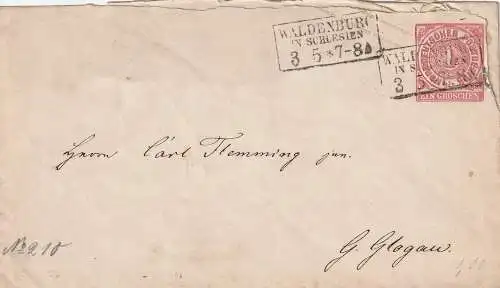 WALDENBURG
IN SCHLESIEN
3 5 *7-8
WALD
IN S
3
EIN GROSCHEN
Herrn Carl Flemming jun.
G. Glogau.
No 210